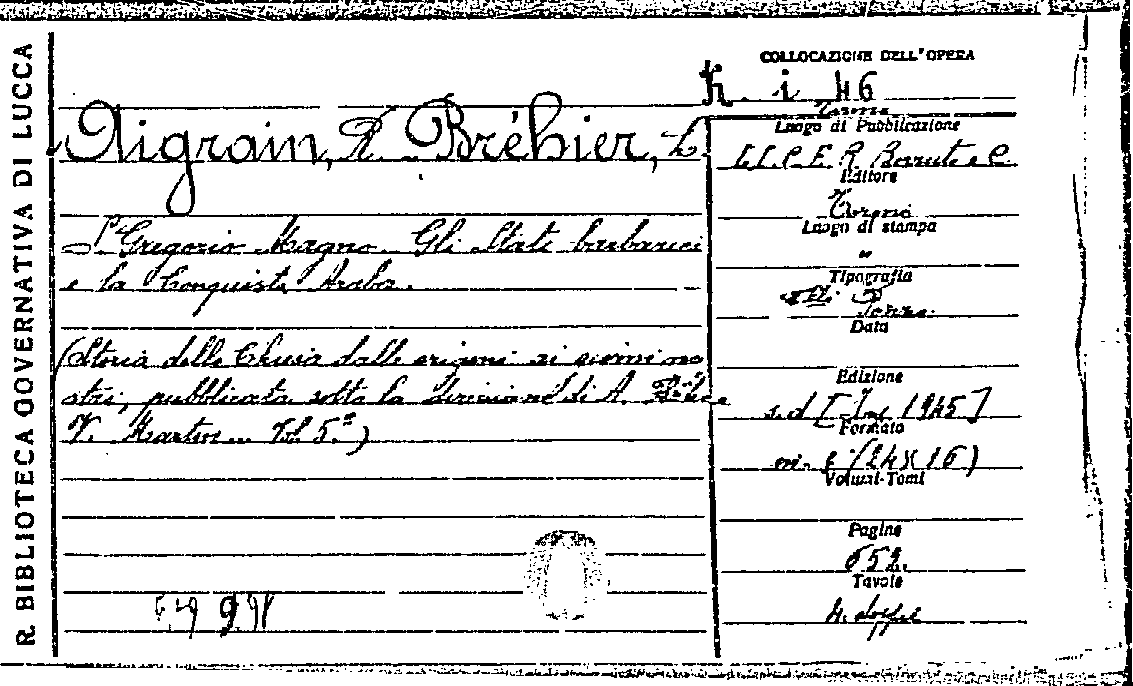 R. BIBLIOTECA GOVERNATIVA DI LUCCA
Aigrain, A. Bréhier, L.
S. Gregorio Magno. Gli Stati barbarici
e la Conquista Araba.
(Storia della Chiesa dalle origini ai giorni no
stri, pubblicata sotto la direzione di A.
V. Martin Vol. 5.°)
COLLOCAZIONE DELL'OPERA
h. i 46
Torino
Luogo di Pubblicazione
Editore
Torino
Luogo di stampa
"
Tipografia
Data
Edizione
s.d. 1945]
Formato
(24x16)
Volumi-Tomi
Pagine
652.
Tavole